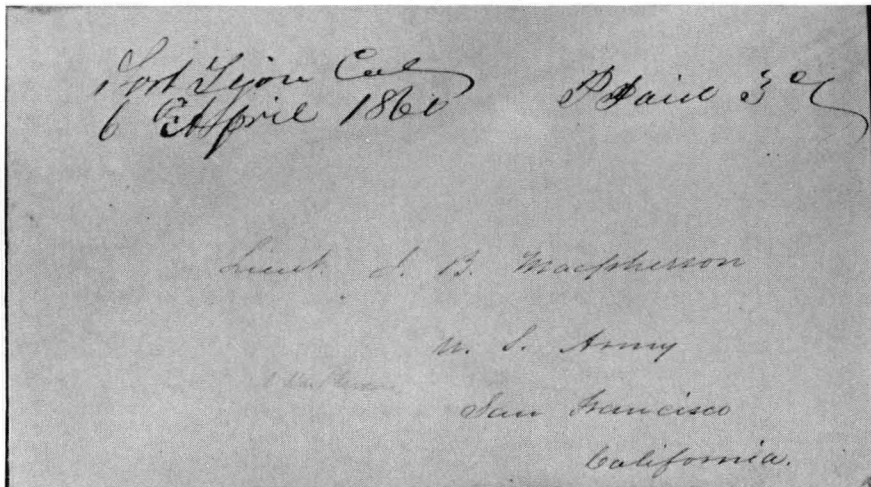 Fort Tejon Cal
6 April 1860
Paid 3c
Lieut. J. B. Macpherson
U. S. Army
San Francisco
California.